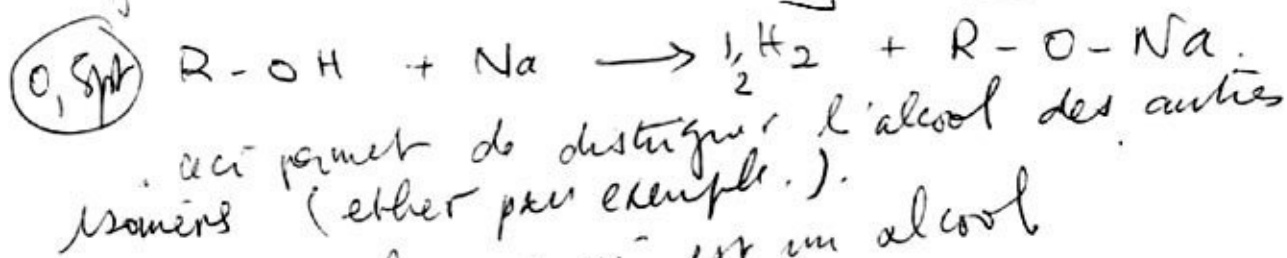 0,5pt R - OH + Na → 1/2 H2 + R - O - Na.
. ceci permet de distinguer l'alcool des autres
isomères (ether par exemple.).
est un alcool